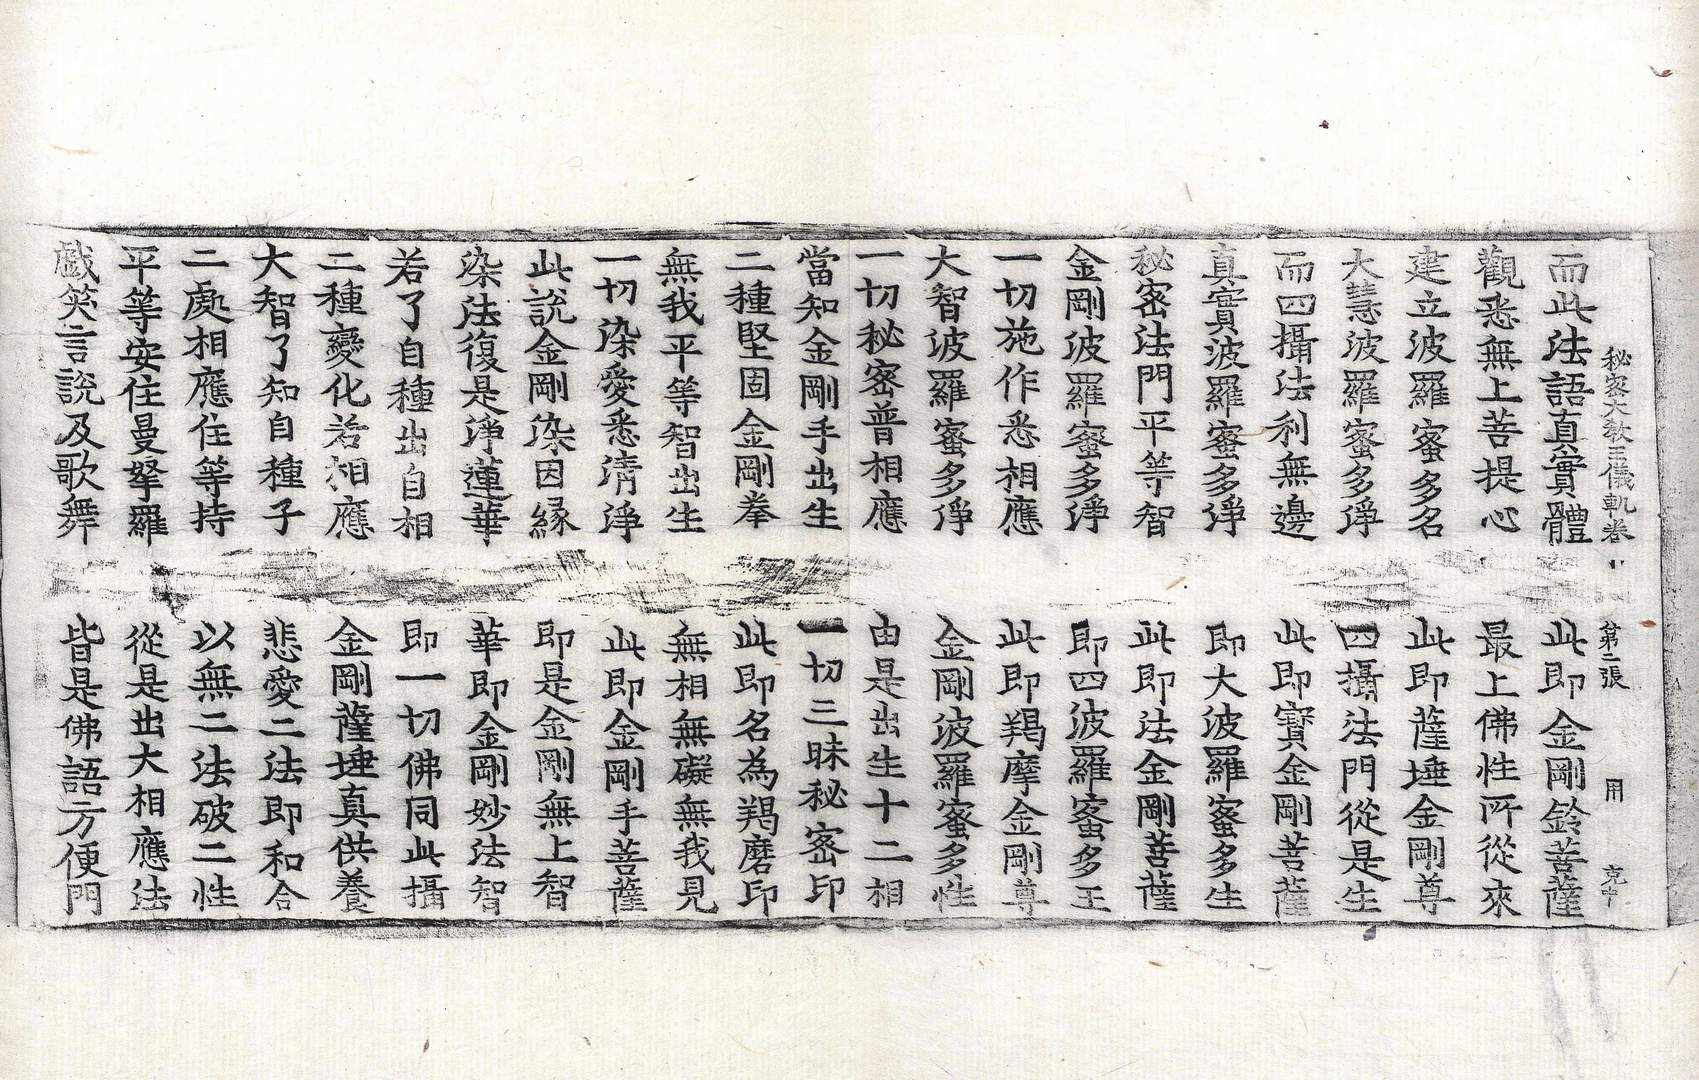 秘密大教王儀軌卷十 第二張 用 克中
而此法語真實體 此即金剛鈴菩薩
觀悉無上菩提心 最上佛性所從來
建立波羅蜜多名 此即薩埵金剛尊
大慧波羅蜜多淨 四攝法門從是生
而四攝法利無邊 此即寶金剛菩薩
真實波羅蜜多淨 即大波羅蜜多生
秘密法門平等智 此即法金剛菩薩
金剛波羅蜜多淨 即四波羅蜜多王
一切施作悉相應 此即羯摩金剛尊
大智波羅蜜多淨 金剛波羅蜜多性
一切秘密普相應 由是出生十二相
當知金剛手出生 一切三昧秘密印
二種堅固金剛拳 此即名為羯磨印
無我平等智出生 無相無礙無我見
一切染愛悉清淨 此即金剛手菩薩
此說金剛染因緣 即是金剛無上智
染法復是淨蓮華 華即金剛妙法智
若了自種出自相 即一切佛同此攝
二種變化若相應 金剛薩埵真供養
大智了知自種子 悲愛二法即和合
二處相應住等持 以無二法破二性
平等安住曼拏羅 從是出大相應法
戲笑言說及歌舞 皆是佛語方便門